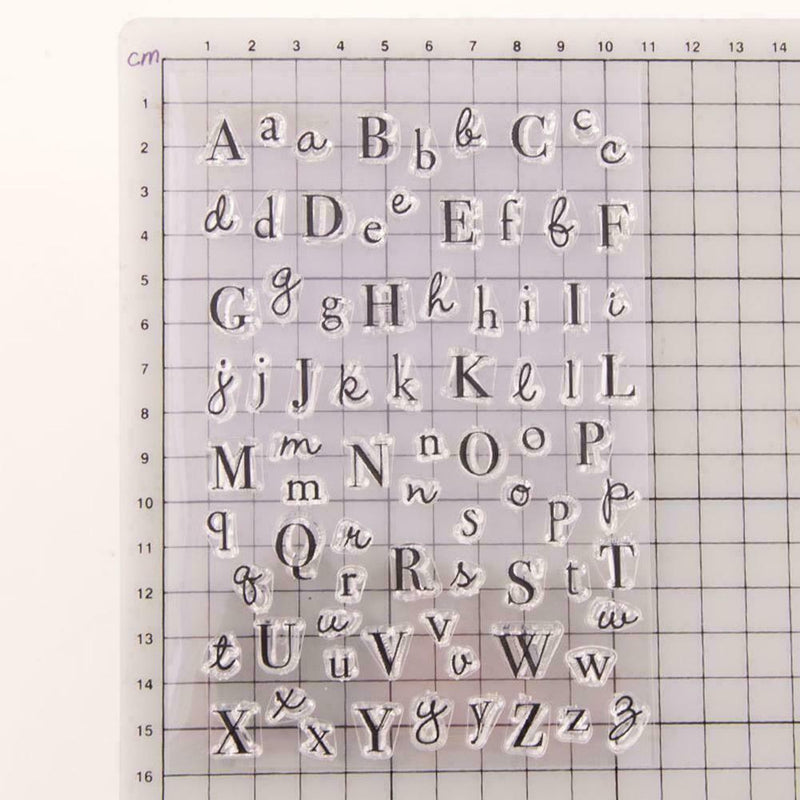 1 2 3 4 5 6 7 8 9 10 11 12 13 14
cm
1
A a a B b b C c c
2
3
d d D e e E f f F
4
5
G g g H h h i I i
6
7
j j J k k K l l L
8
9
M m m N n n O o o P p p
10
q q Q r r R s s S t T
11
12
t U u u V v v W w w
13
14
X x x Y y y Z z z
15
16